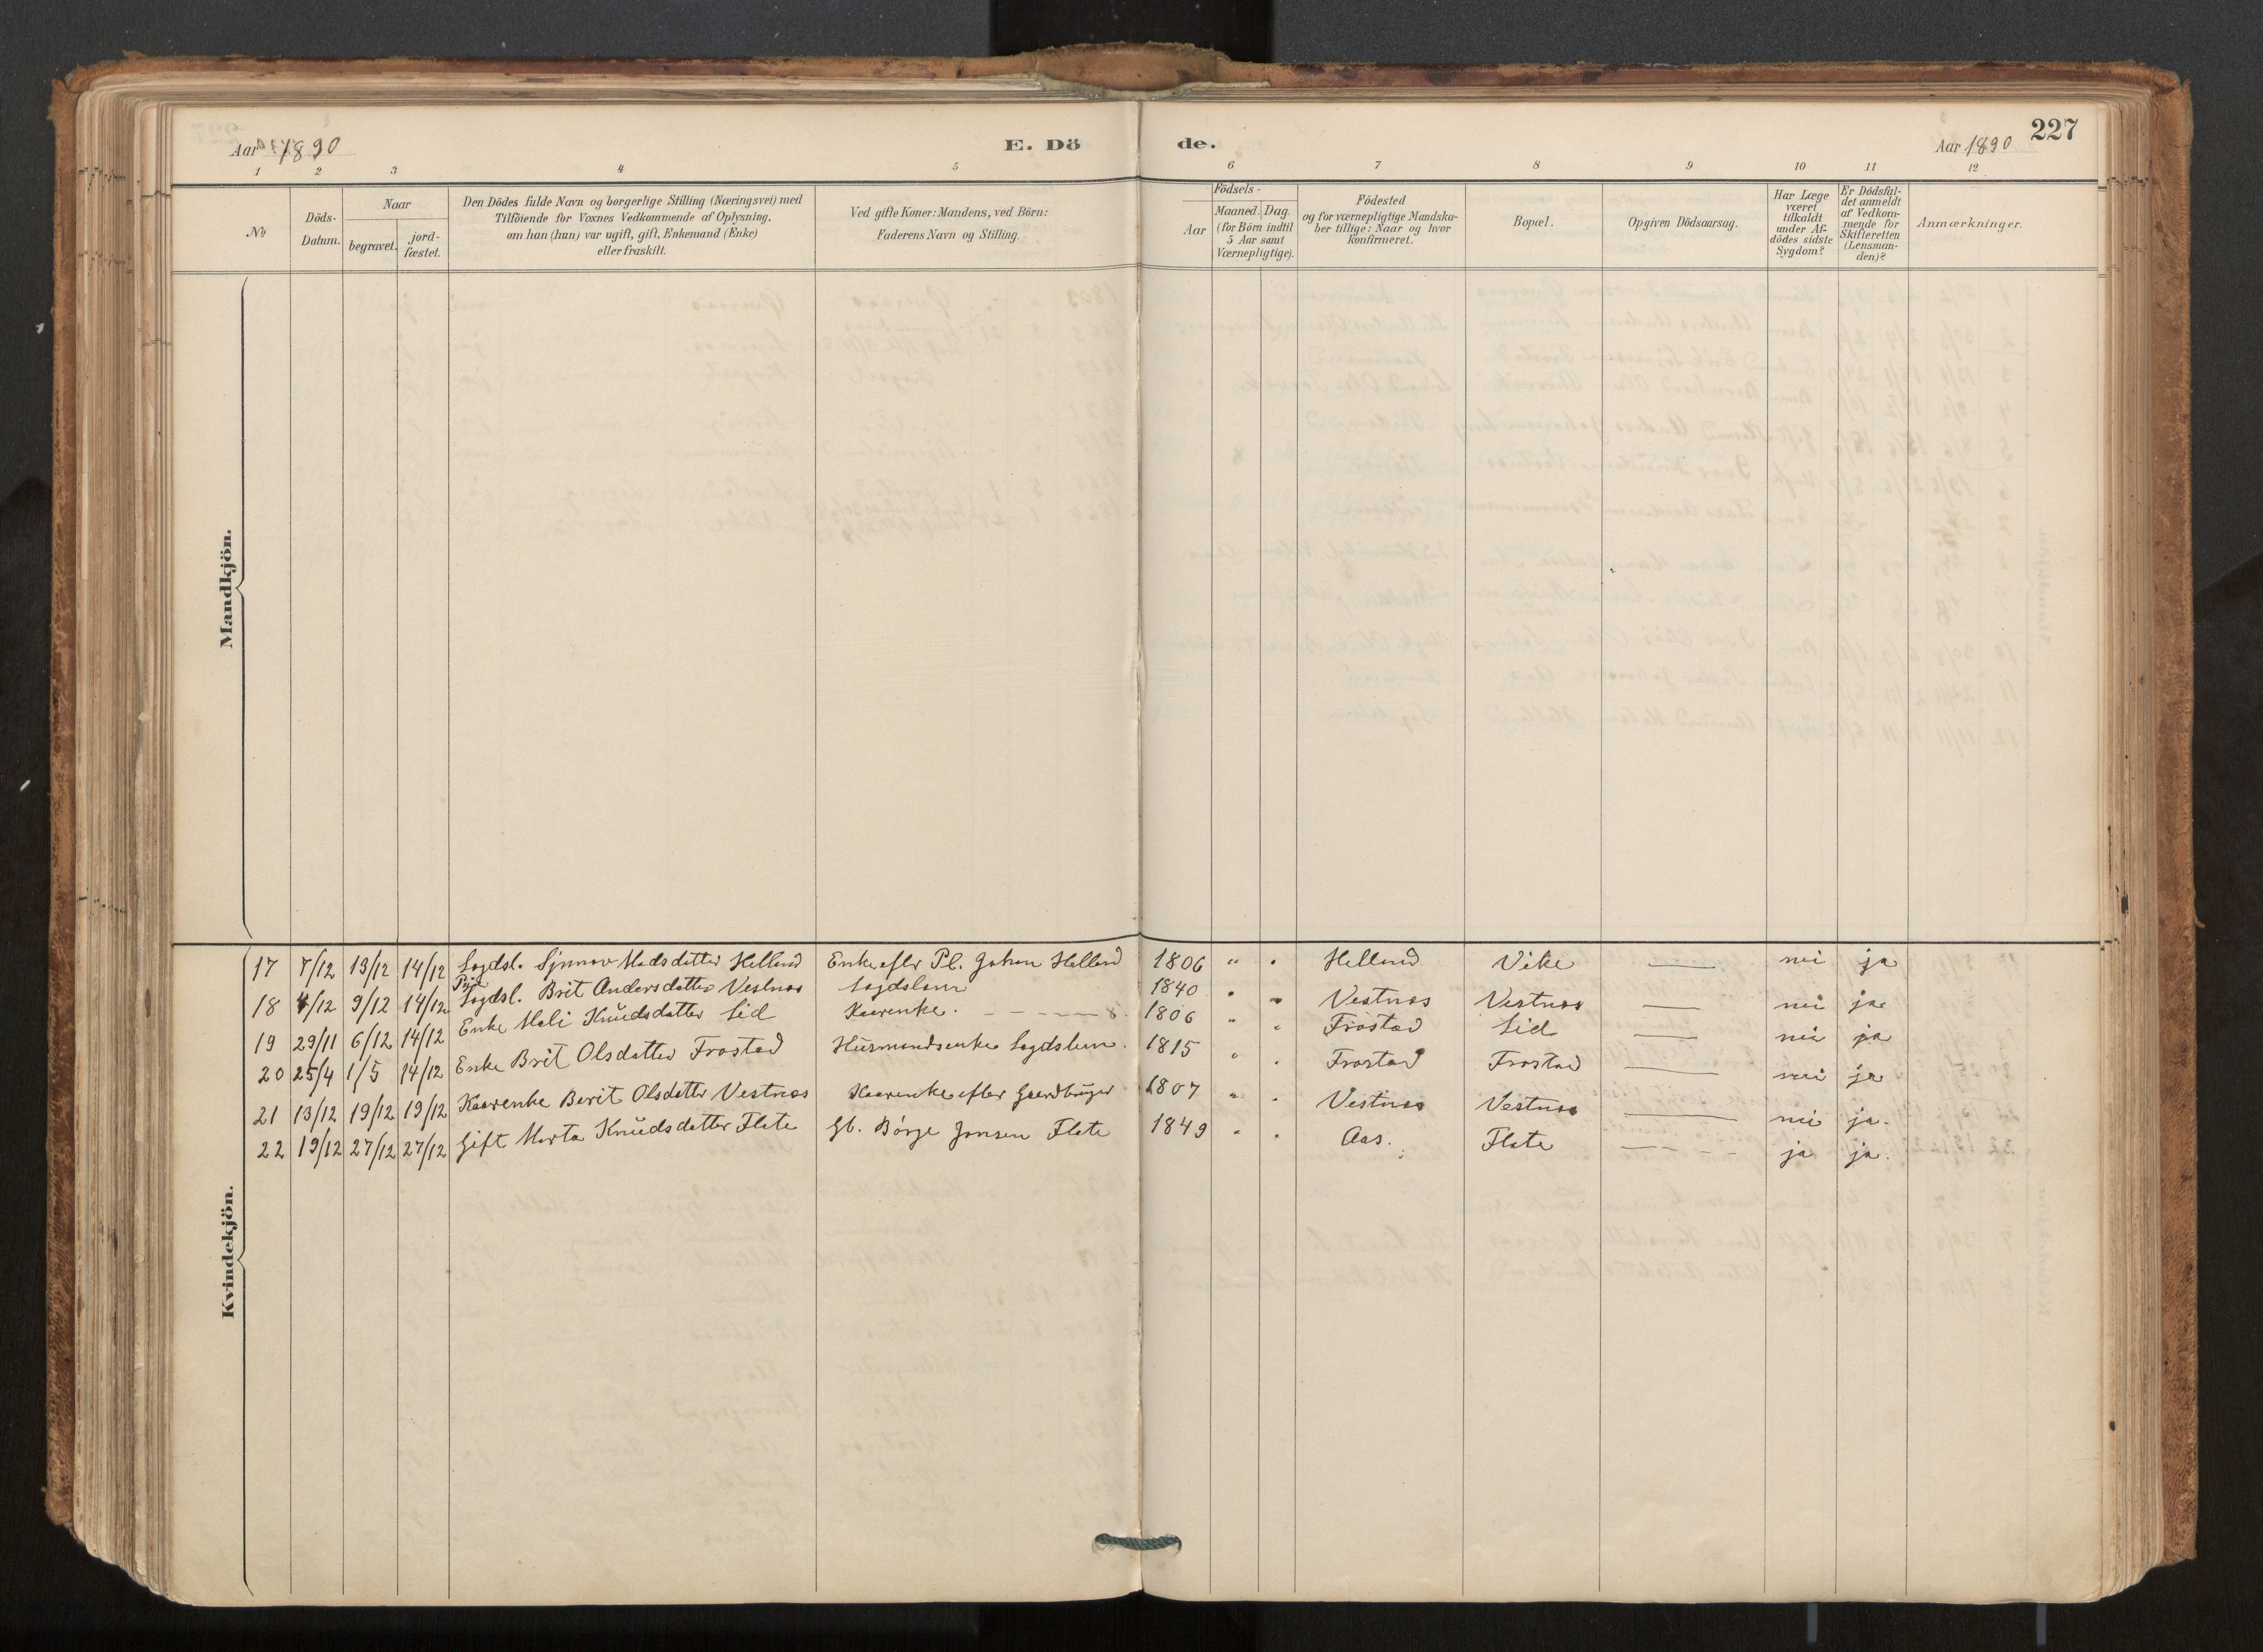 Aar 1890 E. Dö de. Aar 1890 227
1 2 3 4 5 6 7 8 9 10 11 12
№
Döds-Datum.
Naar
begravet.
jord-fæstet.
Den Dödes fulde Navn og borgerlige Stilling (Næringsvei) med
Tilföiende for Voxnes Vedkommende af Oplysning,
om han (hun) var ugift, gift, Enkemand (Enke)
eller fraskilt.
Ved gifte Koner: Mandens, ved Börn:
Faderens Navn og Stilling.
Födsels-
Aar
Maaned. Dag.
(for Börn indtil
5 Aar samt
Værnepligtige).
Födested
og for værnepligtige Mandska-
ber tillige: Naar og hvor
konfirmeret.
Bopæl.
Opgiven Dödsaarsag.
Har Læge
været
tilkaldt
under Af-
dödes sidste
Sygdom?
Er Dödsfal-
det anmeldt
af Vedkom-
mende for
Skifteretten
(Lensman-
den)?
Anmærkninger.
Mandkjön.
Kvindekjön.
17 7/12 13/12 14/12 Lægdsl. Synnov Madsdatter Helland Enke efter Pl. Johan Helland 1806 " . Helland Vike — nei ja
18 4/12 9/12 14/12 Pige Lægdsl. Brit Andersdatter Vestnæs Lægdslem 1840 " " Vestnæs Vestnæs — nei ja
19 29/11 6/12 14/12 Enke Mali Knudsdatter Lid Kaarenke. 1806 " " Frostad Lid — nei ja
20 25/4 1/5 14/12 Enke Brit Olsdatter Frostad Husmandsenke Lægdslem. 1815 " . Frostad Frostad — nei ja
21 13/12 19/12 19/12 Kaarenke Berit Olsdatter Vestnæs Kaarenke efter Gaardbruger 1807 " . Vestnæs Vestnæs — nei ja.
22 19/12 27/12 27/12 Gift Marta Knudsdatter Flate Gb. Börge Jonsen Flate 1849 " . Aas. Flate — ja ja.